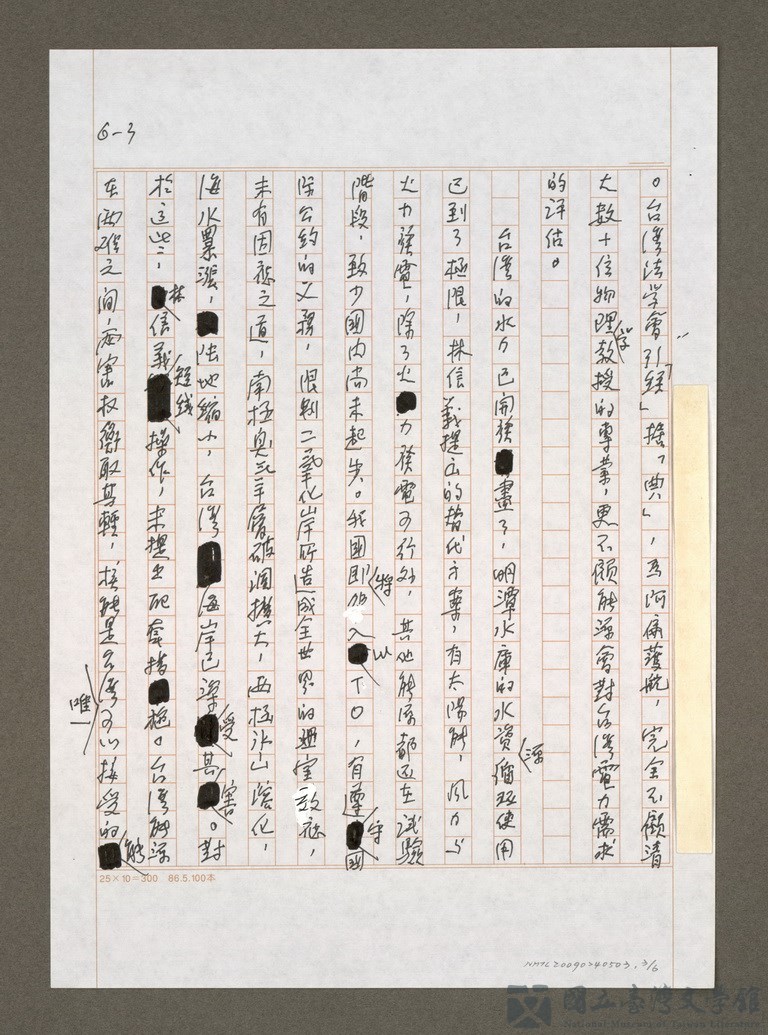 6-3
。台灣法學會引「經」據「典」,為阿扁護航,完全不顧清
大數十位物理學教授的專業,更不顧能源會對台灣電力需求
的評估。
台灣的水力已開發盡了,明潭水庫的水資源循環使用
已到了極限,林信義提出的替代方案,有太陽能,風力与
火力發電,除了火力發電可行外,其他能源都還在試驗
階段,致少國內尚未起步。我國即將加入WTO,有遵守國
際公約的义務,限制二氧化岸所造成全世界的溫室效應,
未有因應之道,南極臭氧層破洞擴大,兩極冰山溶化,
海水累漲,陸地縮小,台灣海岸已深受其害。對
於這些,林信義短線操作,未提出配套措施。台灣能源
在兩難之間,兩害权衡取其輕,核能是台灣唯一可以接受的能
25×10=300 86.5.100本
NMTL20090240503,3/6
國立臺灣文學館
National Museum of Taiwan Literature